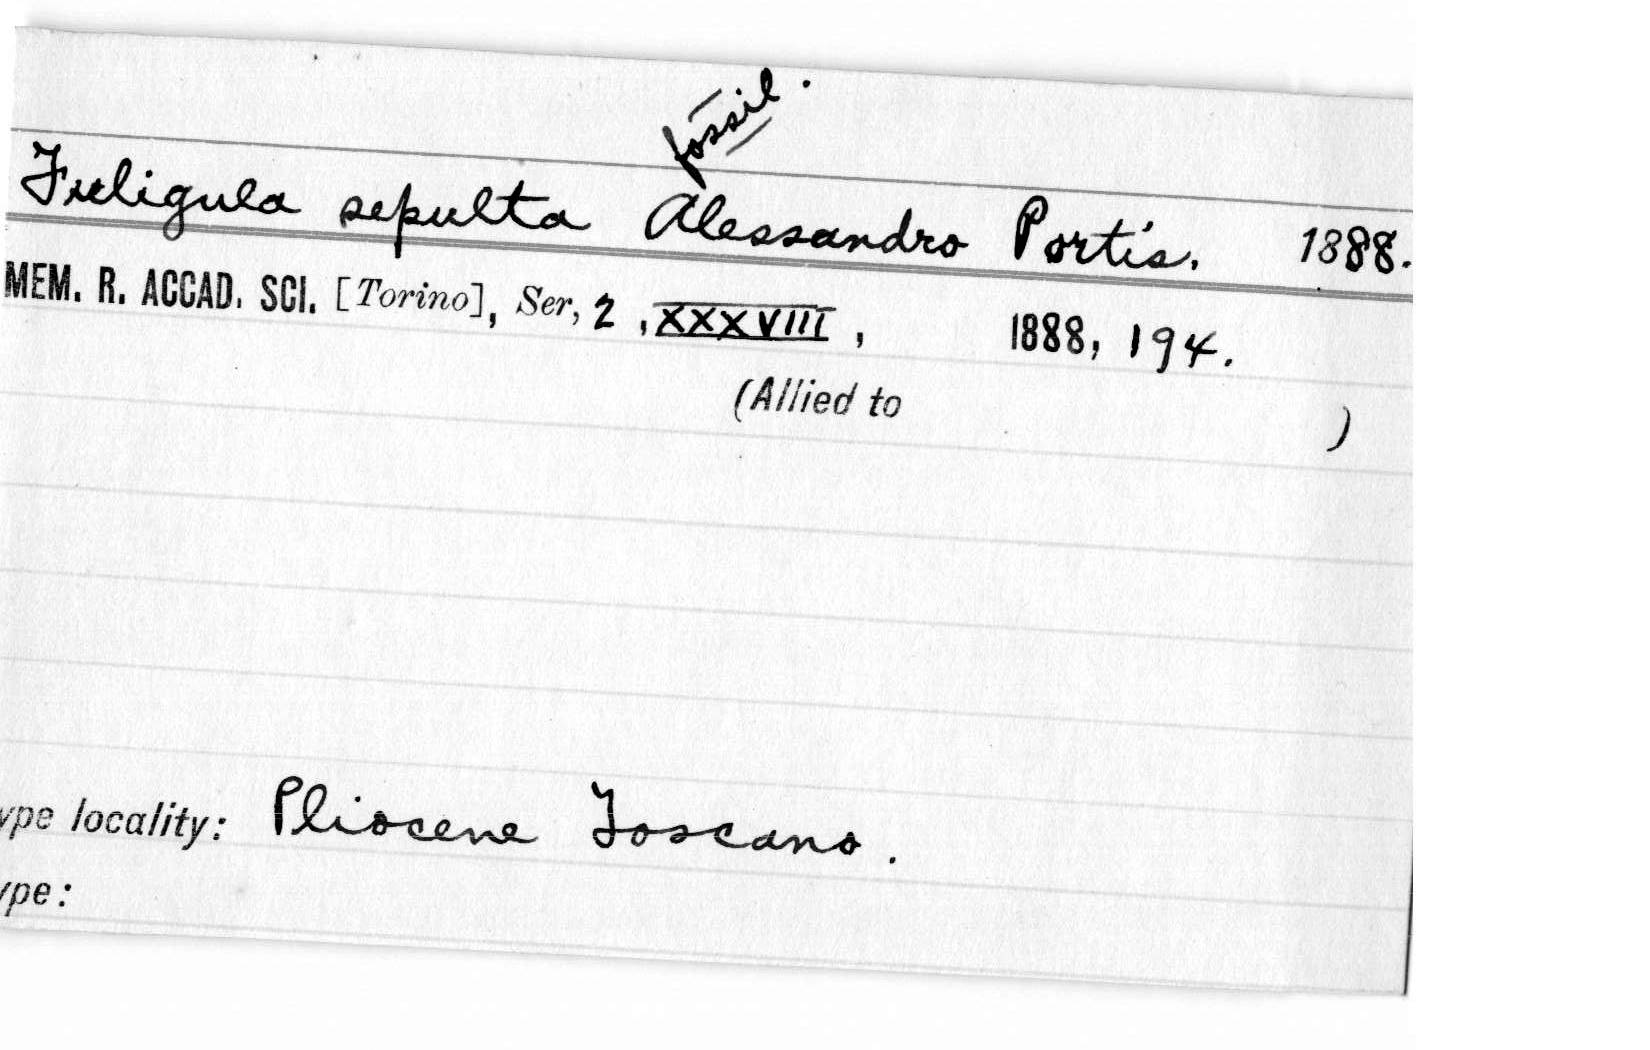 fossil.
Fuligula sepulta Alessandro Portis. 1888.
MEM. R. ACCAD. SCI. [Torino], Ser, 2 , XXXVIII , 1888, 194.
(Allied to )
ype locality: Pliocene Toscano.
ype: